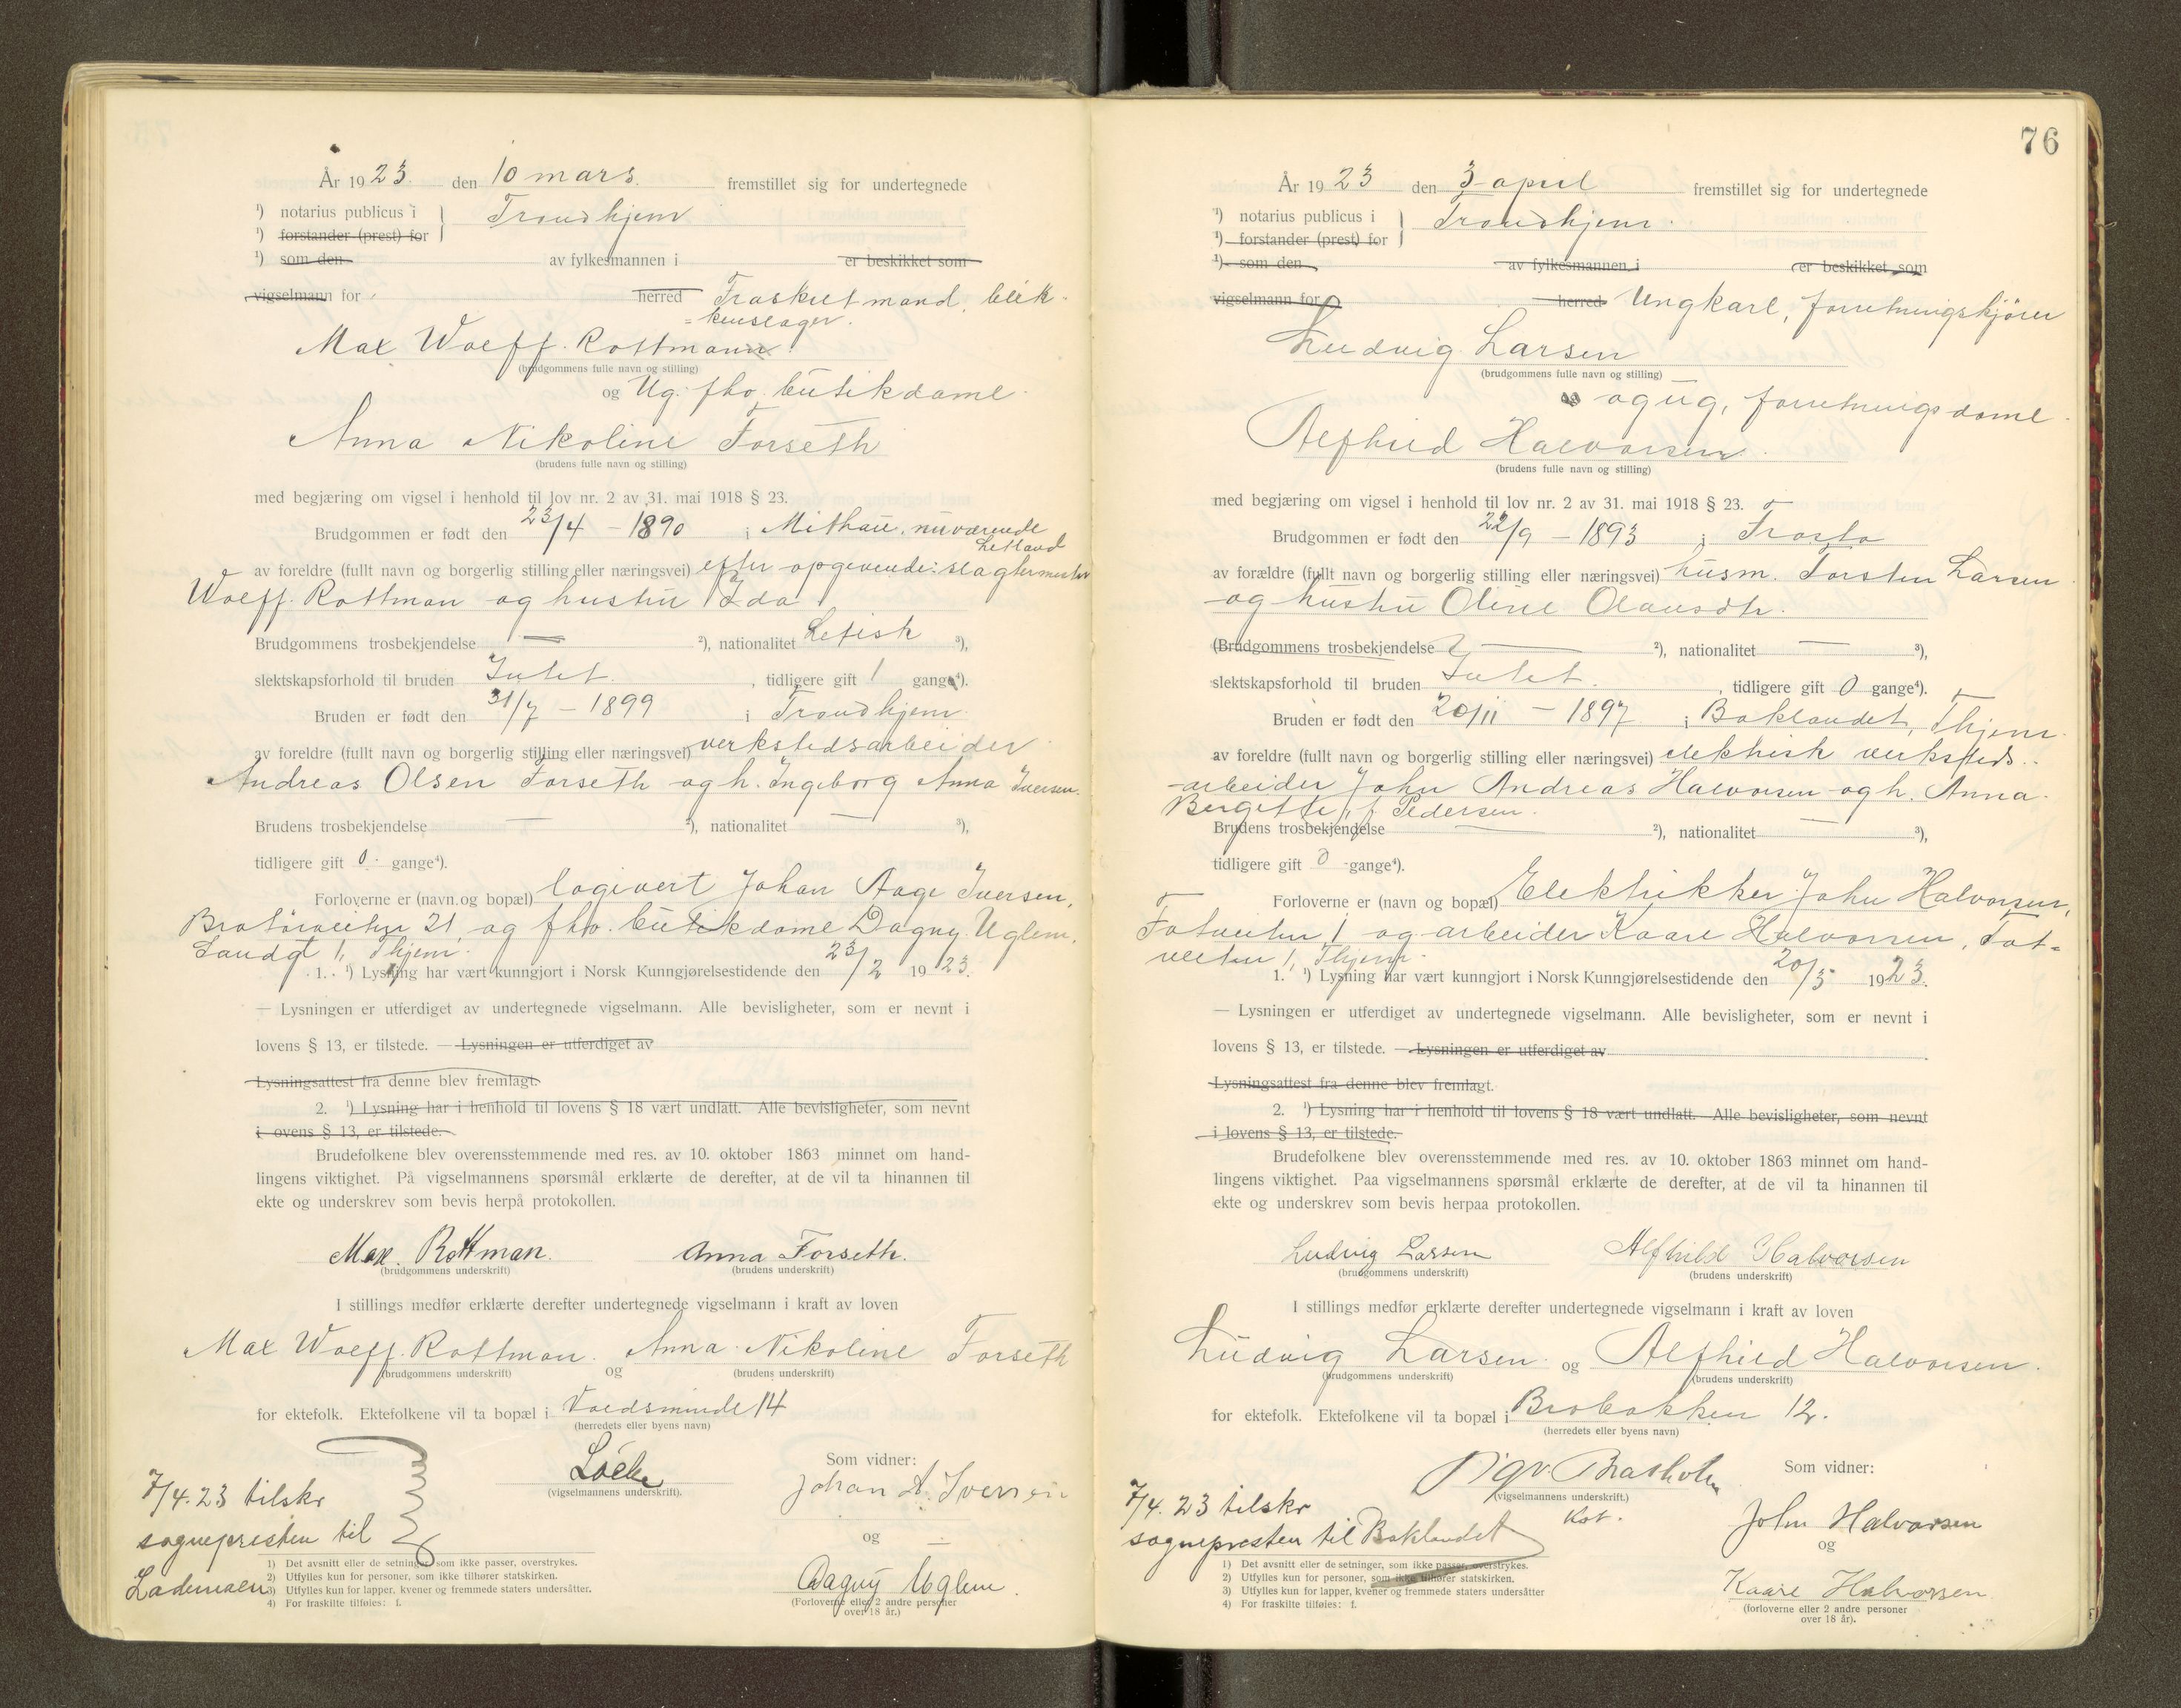 År 1923. den 10 mars. fremstillet sig for undertegnede
¹) notarius publicus i } Trondhjem
¹) forstander (prest) for
¹) som den av fylkesmannen i er beskikket som
vigselmann for herred Fraskilt mand, blik-
kenslager.
Max Wolff Rottmann
(brudgommens fulle navn og stilling)
og Ug. fhv. butikdame
Anna Nikoline Forseth
(brudens fulle navn og stilling)
med begjæring om vigsel i henhold til lov nr. 2 av 31. mai 1918 § 23.
Brudgommen er født den 23/4 - 1890 i Mithau, nuværende
Letland
av foreldre (fullt navn og borgerlig stilling eller næringsvei) efter opgivende: slagtermester
Wolff Rottman og hustru Ida
Brudgommens trosbekjendelse — ²), nationalitet Letisk ³),
slektskapsforhold til bruden Intet. , tidligere gift 1 gang⁴).
Bruden er født den 31/7 - 1899 i Trondhjem
av foreldre (fullt navn og borgerlig stilling eller næringsvei) verkstedsarbeider
Andreas Olsen Forseth og h. Ingeborg Anna Iversen.
Brudens trosbekjendelse — ²), nationalitet — ³),
tidligere gift 0 gange⁴).
Forloverne er (navn og bopæl) logivert Johan Aage Iversen,
Bratørveiten 21, og fhv. butikdame Dagny Uglem,
Sandgt 1, Thjem.
1. ¹) Lysning har vært kunngjort i Norsk Kunngjørelsestidende den 23/2 1923.
— Lysningen er utferdiget av undertegnede vigselmann. Alle bevisligheter, som er nevnt i
lovens § 13, er tilstede. — Lysningen er utferdiget av
Lysningsattest fra denne blev fremlagt.
2. ¹) Lysning har i henhold til lovens § 18 vært undlatt. Alle bevisligheter, som nevnt
i ovens § 13, er tilstede.
Brudefolkene blev overensstemmende med res. av 10. oktober 1863 minnet om hand-
lingens viktighet. På vigselmannens spørsmål erklærte de derefter, at de vil ta hinannen til
ekte og underskrev som bevis herpå protokollen.
Max. Rottman. Anna Forseth.
(brudgommens underskrift) (brudens underskrift)
I stillings medfør erklærte derefter undertegnede vigselmann i kraft av loven
Max Wolff Rottman. Anna Nikoline Forseth
(brudgommens underskrift) og (brudens underskrift)
for ektefolk. Ektefolkene vil ta bopæl i Voldsminde 14
(herredets eller byens navn)
Som vidner:
Löche
(vigselmannens underskrift).
Johan A. Iversen
og
Dagny Uglem.
(Forloverne eller 2 andre personer
over 18 år.)
7/4.23 tilskr
sognepresten til
Lademoen
1) Det avsnitt eller de setninger som ikke passer, overstrykes.
2) Utfylles kun for personer, som ikke tilhører statskirken.
3) Utfylles kun for lapper, kvener og fremmede staters undersåtter.
4) For fraskilte tilføies: f.
76
År 1923 den 3 april fremstillet sig for undertegnede
¹) notarius publicus i } Trondhjem.
¹) forstander (prest) for
¹) som den av fylkesmannen i er beskikket som
vigselmann for herred Ungkarl, forretningskjører
Ludvig Larsen
(brudgommens fulle navn og stilling)
og ug, forretningsdame
Alfhild Halvorsen
(brudens fulle navn og stilling)
med begjæring om vigsel i henhold til lov nr. 2 av 31. mai 1918 § 23.
Brudgommen er født den 22/9 - 1893 i Frosta
av forældre (fullt navn og borgerlig stilling eller næringsvei) husm. Torsten Larsen
og hustru Oline Olausdtr.
(Brudgommens trosbekjendelse — ²), nationalitet — ³),
slektskapsforhold til bruden Intet. , tidligere gift 0 gange⁴).
Bruden er født den 20/11 - 1897 i Baklandet, Thjem.
av foreldre (fullt navn og borgerlig stilling eller næringsvei) elektrisk verksteds-
-arbeider John Andreas Halvorsen og h. Anna
Bergitte, f Pedersen.
Brudens trosbekjendelse — ²), nationalitet — ³),
tidligere gift 0 gange⁴).
Forloverne er (navn og bopæl) Elektrikker John Halvorsen,
Totveiten 1 og arbeider Kaare Halvorsen, Tot=
veiten 1, Thjem.
1. ¹) Lysning har vært kunngjort i Norsk Kunngjørelsestidende den 20/3 1923.
— Lysningen er utferdiget av undertegnede vigselmann. Alle bevisligheter, som er nevnt i
lovens § 13, er tilstede. — Lysningen er utferdiget av
Lysningsattest fra denne blev fremlagt.
2. ¹) Lysning har i henhold til lovens § 18 vært undlatt. Alle bevisligheter, som nevnt
i lovens § 13, er tilstede.
Brudefolkene blev overensstemmende med res. av 10. oktober 1863 minnet om hand-
lingens viktighet. Paa vigselmannens spørsmål erklærte de derefter, at de vil ta hinannen til
ekte og underskrev som bevis herpaa protokollen.
Ludvig Larsen Alfhild Halvorsen
(brudgommens underskrift) (brudens underskrift)
I stillings medfør erklærte derefter undertegnede vigselmann i kraft av loven
Ludvig Larsen og Alfhild Halvorsen.
(brudgommens underskrift) (brudens underskrift)
for ektefolk. Ektefolkene vil ta bopæl i Brobakken 12.
(herredets eller byens navn)
Som vidner:
(vigselmannens underskrift.)
Kst.
John Halvorsen
og
Kaare Halvorsen
(forloverne eller 2 andre personer
over 18 år).
7/4.23 tilskr
sognepresten til Baklandet
1) Det avsnitt eller de setninger, som ikke passer, overstrykes.
2) Utfylles kun for personer, som ikke tilhører statskirken.
3) Utfylles kun for lapper, kvener og fremmede staters undersåtter
4) For fraskilte tilføies: f.